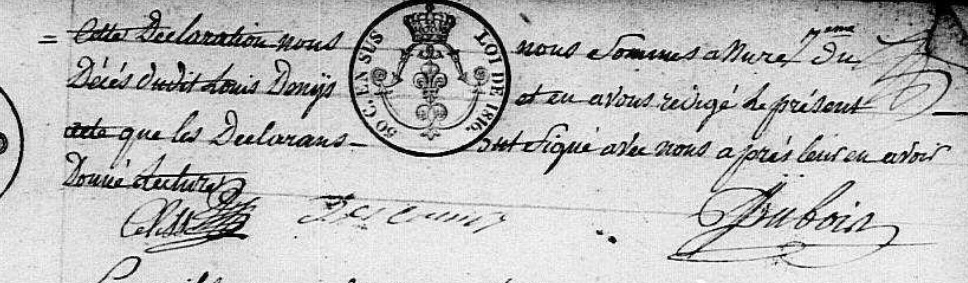 = Cette Declaration nous nous sommes assuré du
Décés dudit Louis Denÿs et en avons redigé le présent
acte que les Declarans ont signé avec nous aprés leur en avoir
Donné lecture
50 C. EN SUS
LOI DE 1816.
Dubois